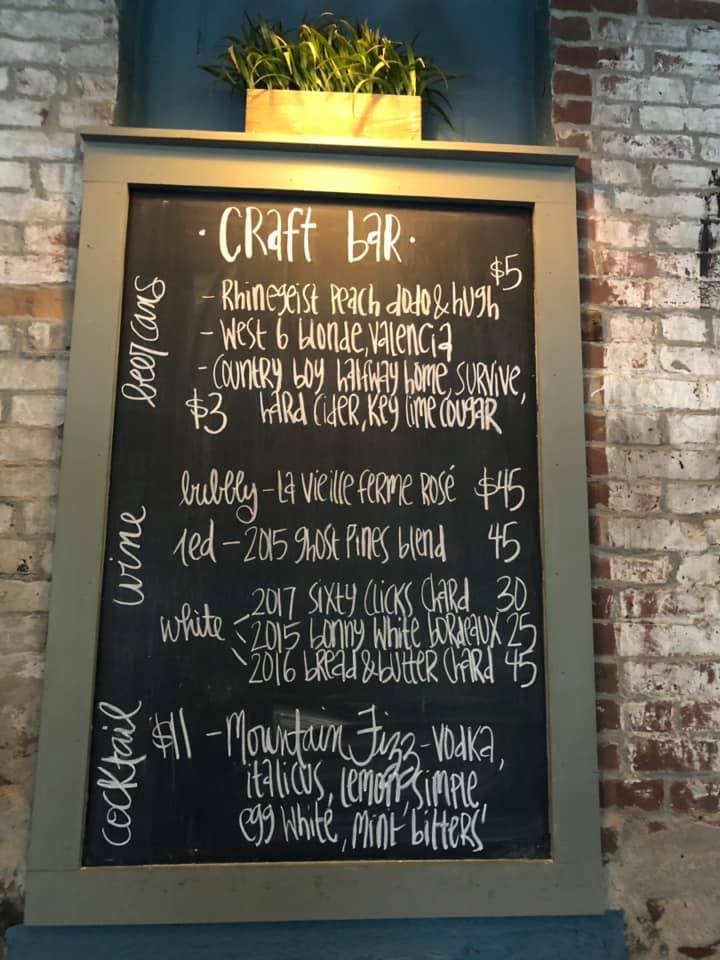 · CRaft baR ·
$5
beer cans
- Rhinegeist Peach dodo & hugh
- West 6 blonde, valencia
- Country boy halfway home, survive,
$3 hard cider, key lime cougar
wine
bubbly - La Vieille Ferme Rosé $45
red - 2015 ghost Pines blend 45
white
2017 Sixty Clicks Chard 30
2015 bonny White bordeaux 25
2016 bread & butter Chard 45
cocktail
$11 - Mountain Fizz - vodka,
italicus, lemon, simple,
egg white, mint bitters